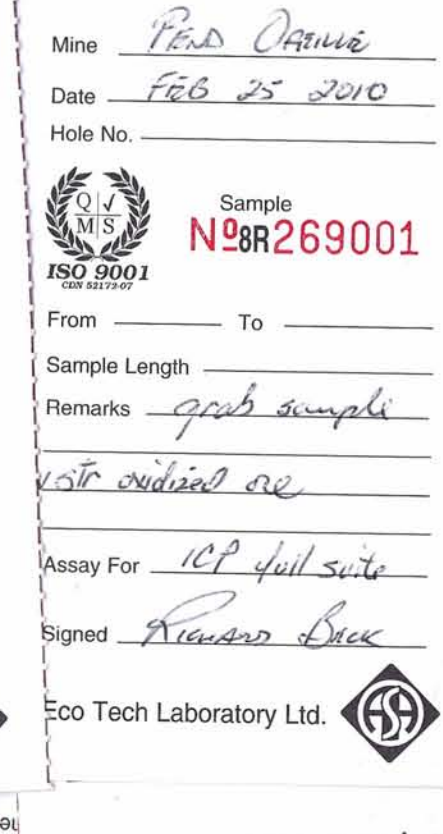 Mine PEND OREILLE
Date FEB 25 2010
Hole No.
Q √
M S
ISO 9001
CDN 52172-07
Sample
Nº8R269001
From To
Sample Length
Remarks grab sample
v str oxidized ore
Assay For ICP full suite
Signed Richard
Eco Tech Laboratory Ltd.